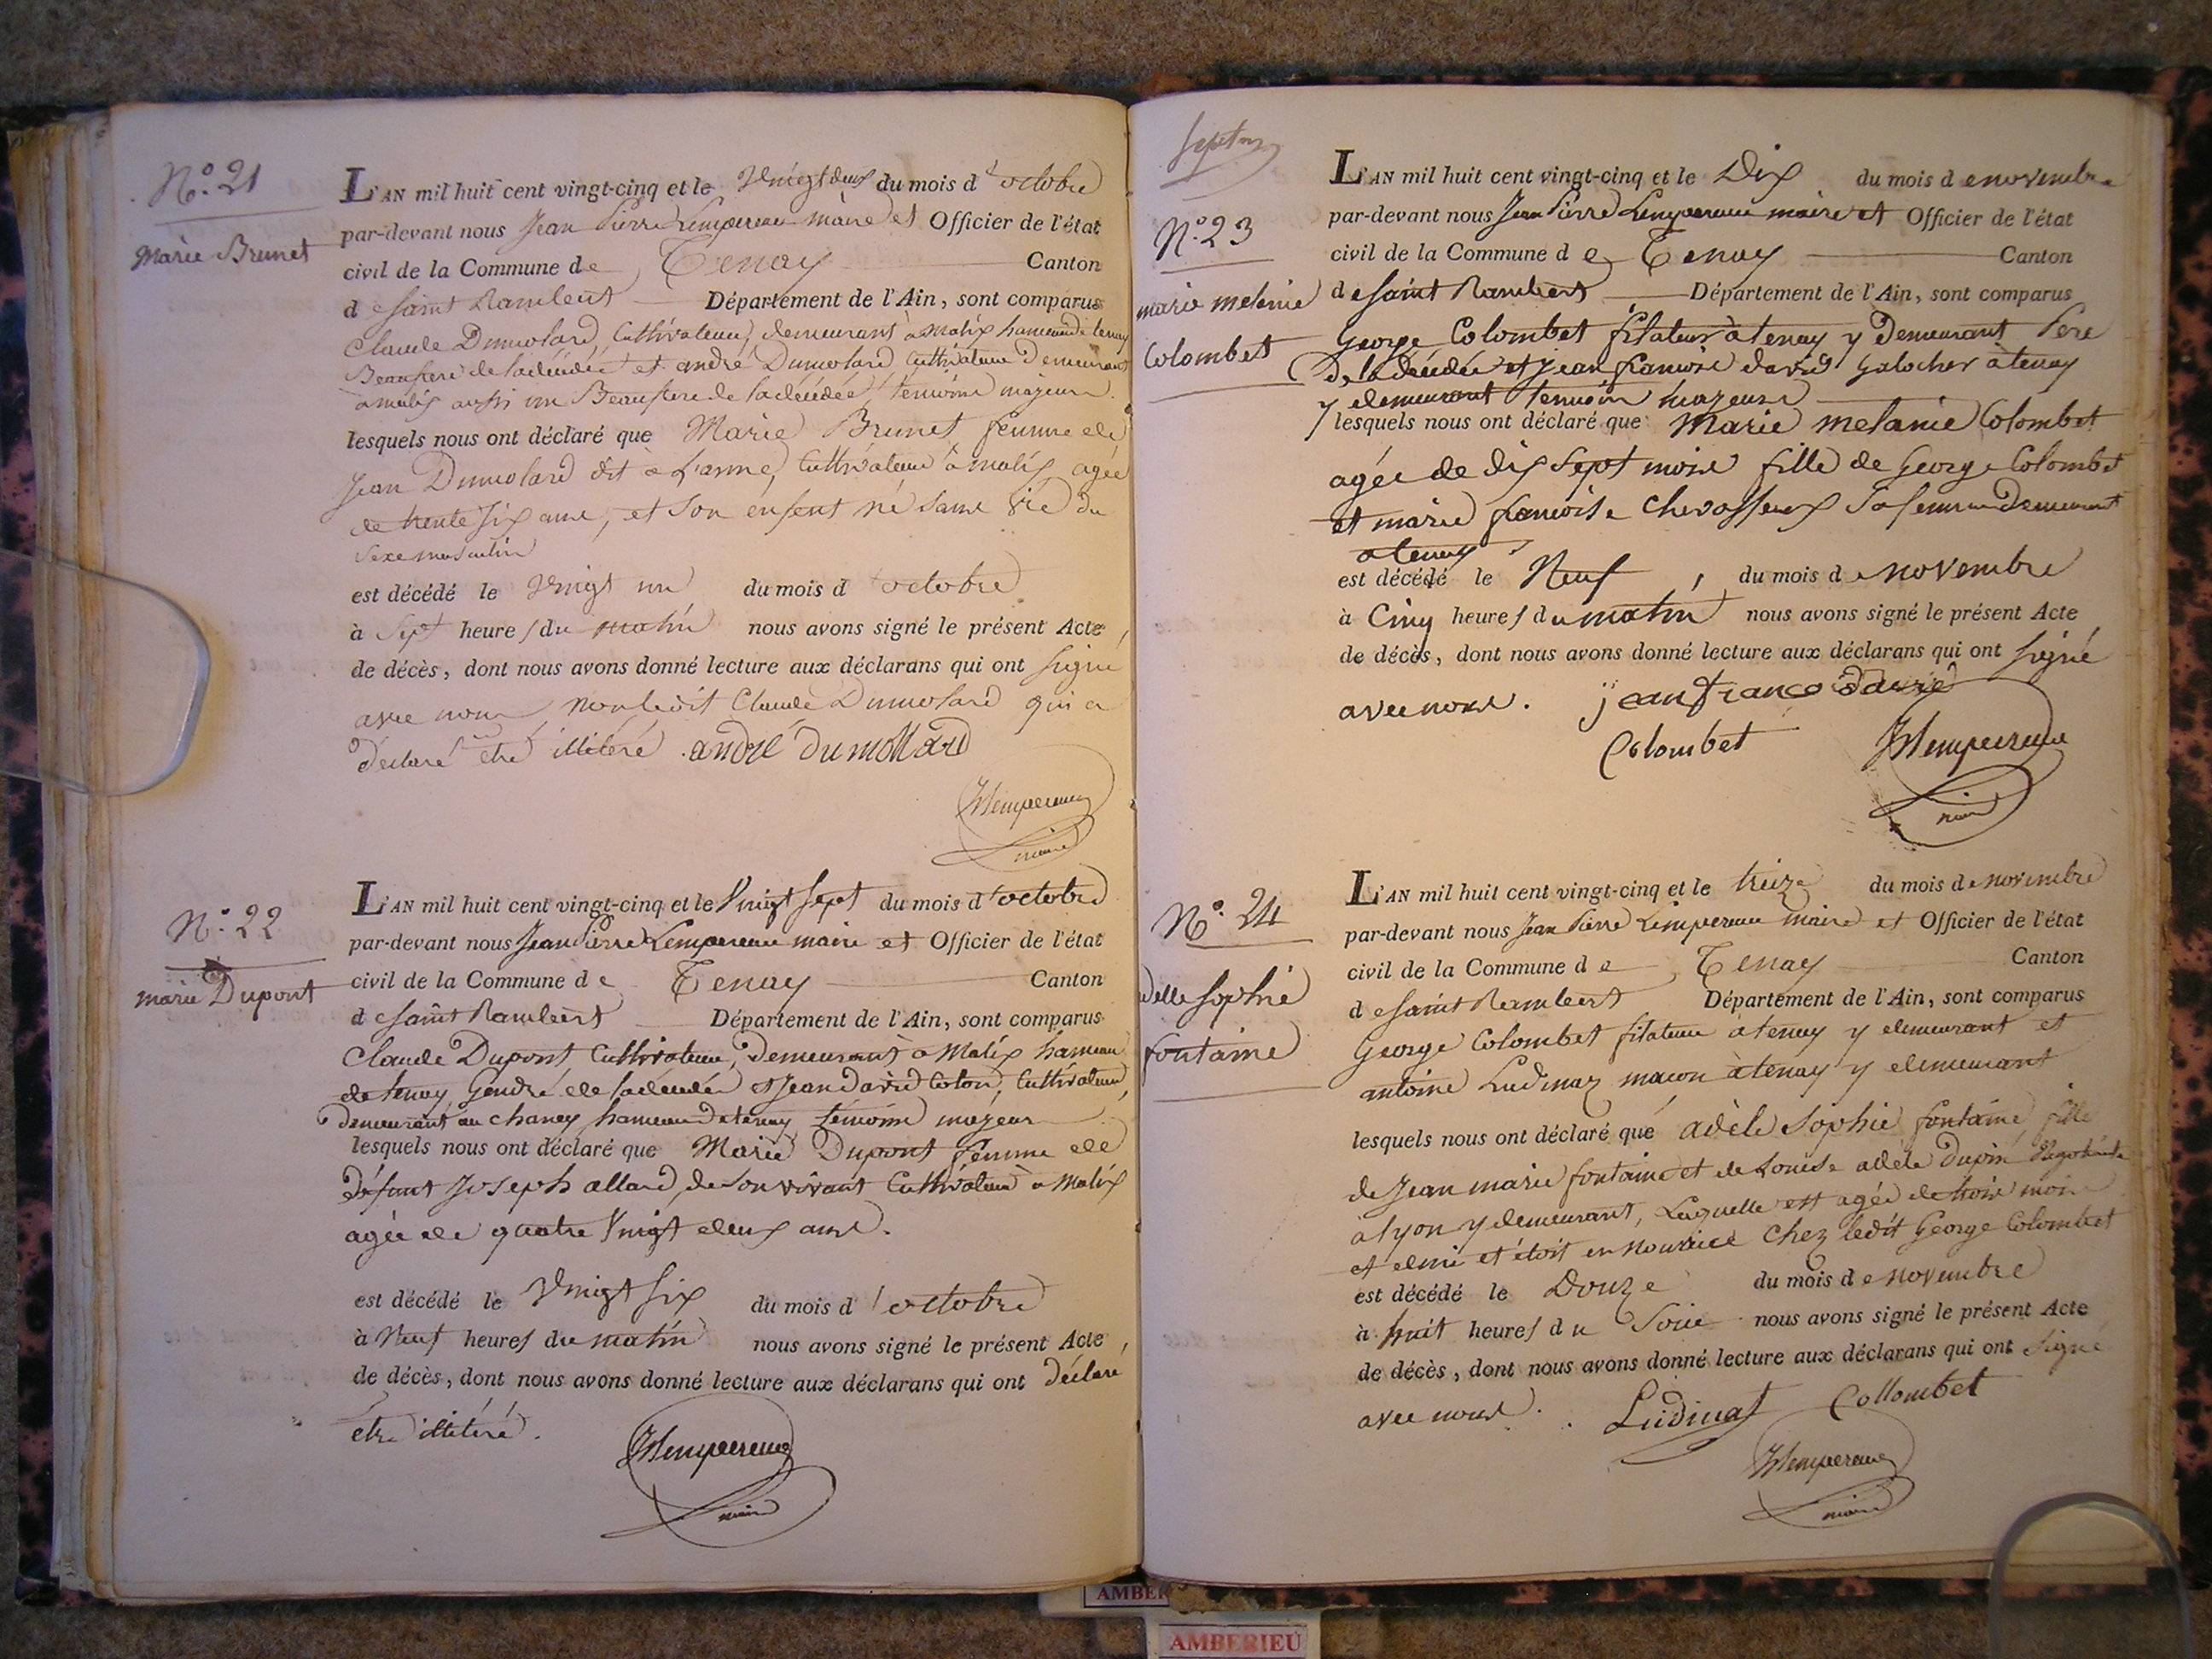 N.° 21
Marie Brunet
L'AN mil huit cent vingt-cinq et le vingt deux du mois d'octobre
par-devant nous Jean Pierre Lempereur maire et Officier de l'état
civil de la Commune de Tenay Canton
de Saint Rambert Département de l'Ain, sont comparus
Claude Dumolard, Cultivateur, demeurant à Malix hameau de tenay
Beaufrere de la décédée et andré Dumolard Cultivateur Demeurant
a malix aussi un Beaufrere de la décédée, temoins majeurs.
lesquels nous ont déclaré que Marie Brunet femme de
Jean Dumolard dit à Cultivateur à malix agée
de trente six ans, et son enfent né sans vie du
sexe masculin
est décédé le vingt un du mois d'octobre
à sept heures du matin nous avons signé le présent Acte
de décès, dont nous avons donné lecture aux déclarans qui ont signé
avec nous, non ledit Claude Dumolard qui a
déclaré être illitéré. andré dumollard
JPLempereur
maire
N.° 22
marie Dupont
L'AN mil huit cent vingt-cinq et le vingt sept du mois d'octobre
par-devant nous Jean Pierre Lempereur maire et Officier de l'état
civil de la Commune de Tenay Canton
de Saint Rambert Département de l'Ain, sont comparus
Claude Dupont Cultivateur, Demeurant à Malix hameau
de tenay, Gendre de la décédée et Jean David Colon, Cultivateur,
Demeurant au chaney hameau de tenay témoins majeurs
lesquels nous ont déclaré que Marie Dupont femme de
défunt Joseph allard, de son vivant Cultivateur à Malix
agée de quatre vingt deux ans.
est décédé le vingt six du mois d'octobre
à neuf heures du matin nous avons signé le présent Acte
de décès, dont nous avons donné lecture aux déclarans qui ont déclaré
etre illitéré.
JPLempereur
maire
N.° 23
marie melanie
Colombet
L'AN mil huit cent vingt-cinq et le Dix du mois de novembre
par-devant nous Jean Pierre Lempereur maire et Officier de l'état
civil de la Commune de Tenay Canton
de Saint Rambert Département de l'Ain, sont comparus
George Colombet filateur à tenay y Demeurant Pere
De la décédée et Jean françois david galocher à tenay
y demeurant temoins majeurs
lesquels nous ont déclaré que Marie melanie Colombet
agée de dix sept mois fille de George Colombet
et marie françoise Chevasseux sa femme Demeurant
a tenay
est décédé le Neuf du mois de novembre
à Cinq heures du matin nous avons signé le présent Acte
de décès, dont nous avons donné lecture aux déclarans qui ont signé
avec nous. jean franco david
Colombet JPLempereur
maire
N.° 24
adelle sophie
fontaine
L'AN mil huit cent vingt-cinq et le treize du mois de novembre
par-devant nous Jean Pierre Lempereur maire et Officier de l'état
civil de la Commune de Tenay Canton
de Saint Rambert Département de l'Ain, sont comparus
George Colombet filateur à tenay y demeurant et
antoine Ludinaz macon à tenay y demeurant
lesquels nous ont déclaré que adèle Sophie fontaine fille
de Jean marie fontaine et de Louise adèle Dupin
à lyon y demeurant, Laquelle est agée de trois mois
et demi et étoit en nourrice Chez ledit George Colombet
est décédé le Douze du mois de novembre
à huit heures du Soir nous avons signé le présent Acte
de décès, dont nous avons donné lecture aux déclarans qui ont signé
avec nous. Ludinat Collombet
JPLempereur
maire
AMBERIEU